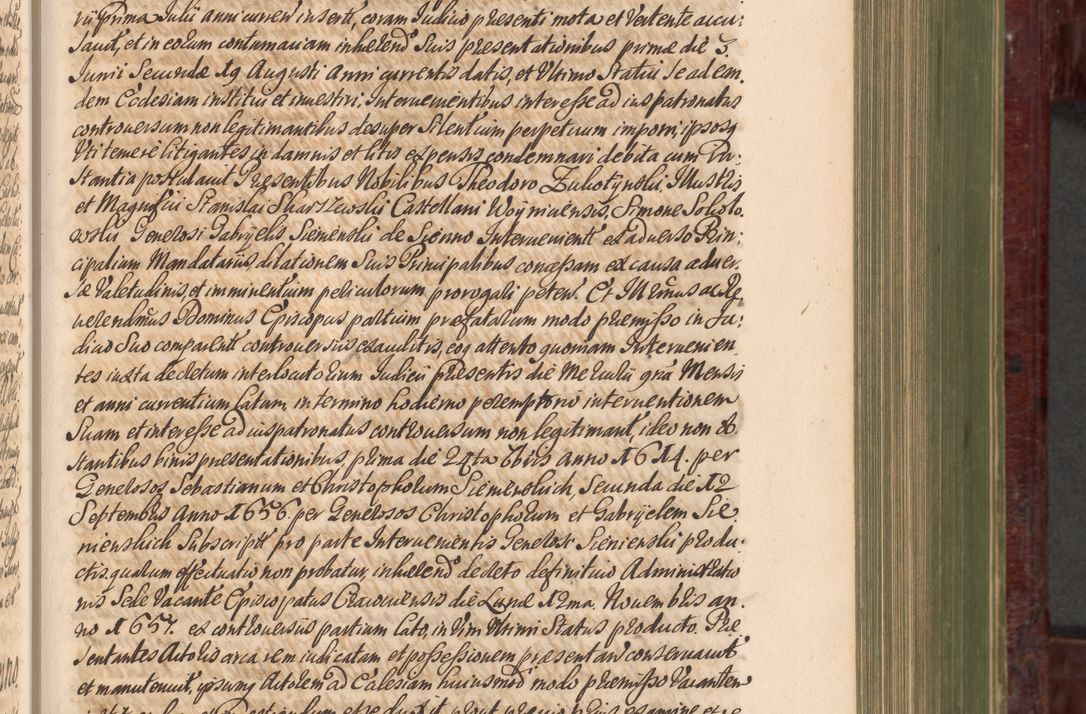 rii Prima Julii anni curren insert, coram Judicio presenti mota et Vertente accu:
sauit, et in eorum contumaciam inhærend Suis presentationibus primæ die 3.
Junii Secundæ 19 Augusti Anni currentis datis, et Vltimo Statui se ad ean.
dem Ecclesiam institui et inuestiri, Interuenientibus interesse ad ius patronatus
controuersum non legitimantibus desuper Silentium perpetuum imponi, ipsosq
Vti temere litigantes in damnis et litis expensis condemnari debita cum In:
stantia postulauit Presentibus Nobilibus Theodoro Zukotynski, Illustris
et Magnifici Stanislai Skarszewski Castellani Woynicensis, Simone Sokolo.
wski Generosi Gabrijelis Siemenski de Sienno Interuenient ex aduerso Prin:
cipalium Mandatariis dilationem Suis Principalibus concessam ex causa aduer.
sæ Valetudinis, et imminentium periculorum prorogari peten. Et Illrimus ac Re
uerendimus Dominus Episcopus partium præfatarum modo præmisso in Ju:
dicio Suo comparent controuersiis exauditis, eoq attento quoniam Interuenien
tes iuxta decretum interlocutorium Judicii presentis die Mercurii 9na Mensis
et anni currentium latum, in termino hodierno peremptorio interuentionem
Suam et interesse ad ius patronatus controuersum non legitimant, ideo non ob
stantibus binis presentationibus prima die 24ta 7bris anno 1614. per
Generosos Sebastianum et Christophorum Siemenskich, Secunda die 12
Septembris Anno 1656. per Generosos Christophorum et Gabrijelem Sie
nienskich Subscript pro parte Interuenientis Generosi Sienienski produ:
ctis, quarum effectuatio non probatur, inhærend decreto definitiuo Administrato
ris Sede Vacante Episcopatus Cracouiensis die Lunæ 12ma. Nouembris an.
no 1657. ex controuersiis partium lato, in Vim Vltimi Status producto. Præ
sentantes Actoris circa rem iudicatam et possessionem præsentan conseruauit
et manutenuit, ipsumq Actorem ad Ecclesiam huiusmod modo præmisso Vacantem